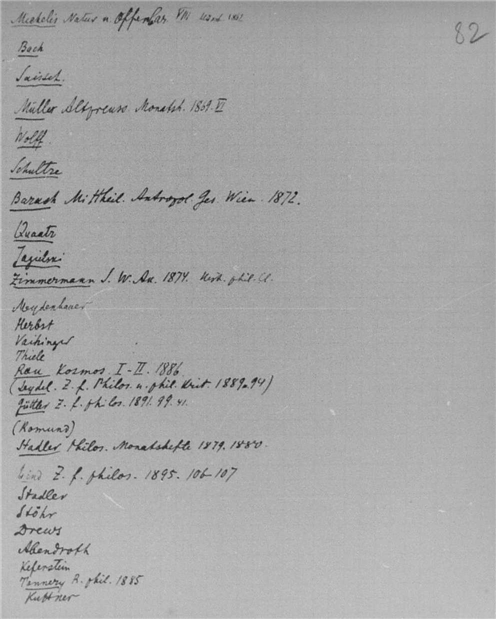 Michelis Natur u. Offenbar. VIII
82
Bock
Müller Altpreuss. Monatsh. 1869. VI
Wolff.
Schultze
Barach Mittheil. Antropol. Ges. Wien. 1872.
Quaatz
Jagielski
Zimmermann S. W. Ak. 1874. phil. Cl.
Meydenbauer
Herbst
Vaihinger
Thiele
Rau Kosmos. I-II. 1886.
(Seydel. Z. f. Philos. u. phil. Krit. 1889 u 94)
Güttler Z. f. philos. 1891. 99. 41.
(Romund)
Stadler Philos. Monatshefte 1879. 1880.
Wind Z. f. philos. 1895. 106-107
Stadler
Stöhr
Drews
Abendroth
Keferstein
Tannery R. phil. 1885
Kuttner